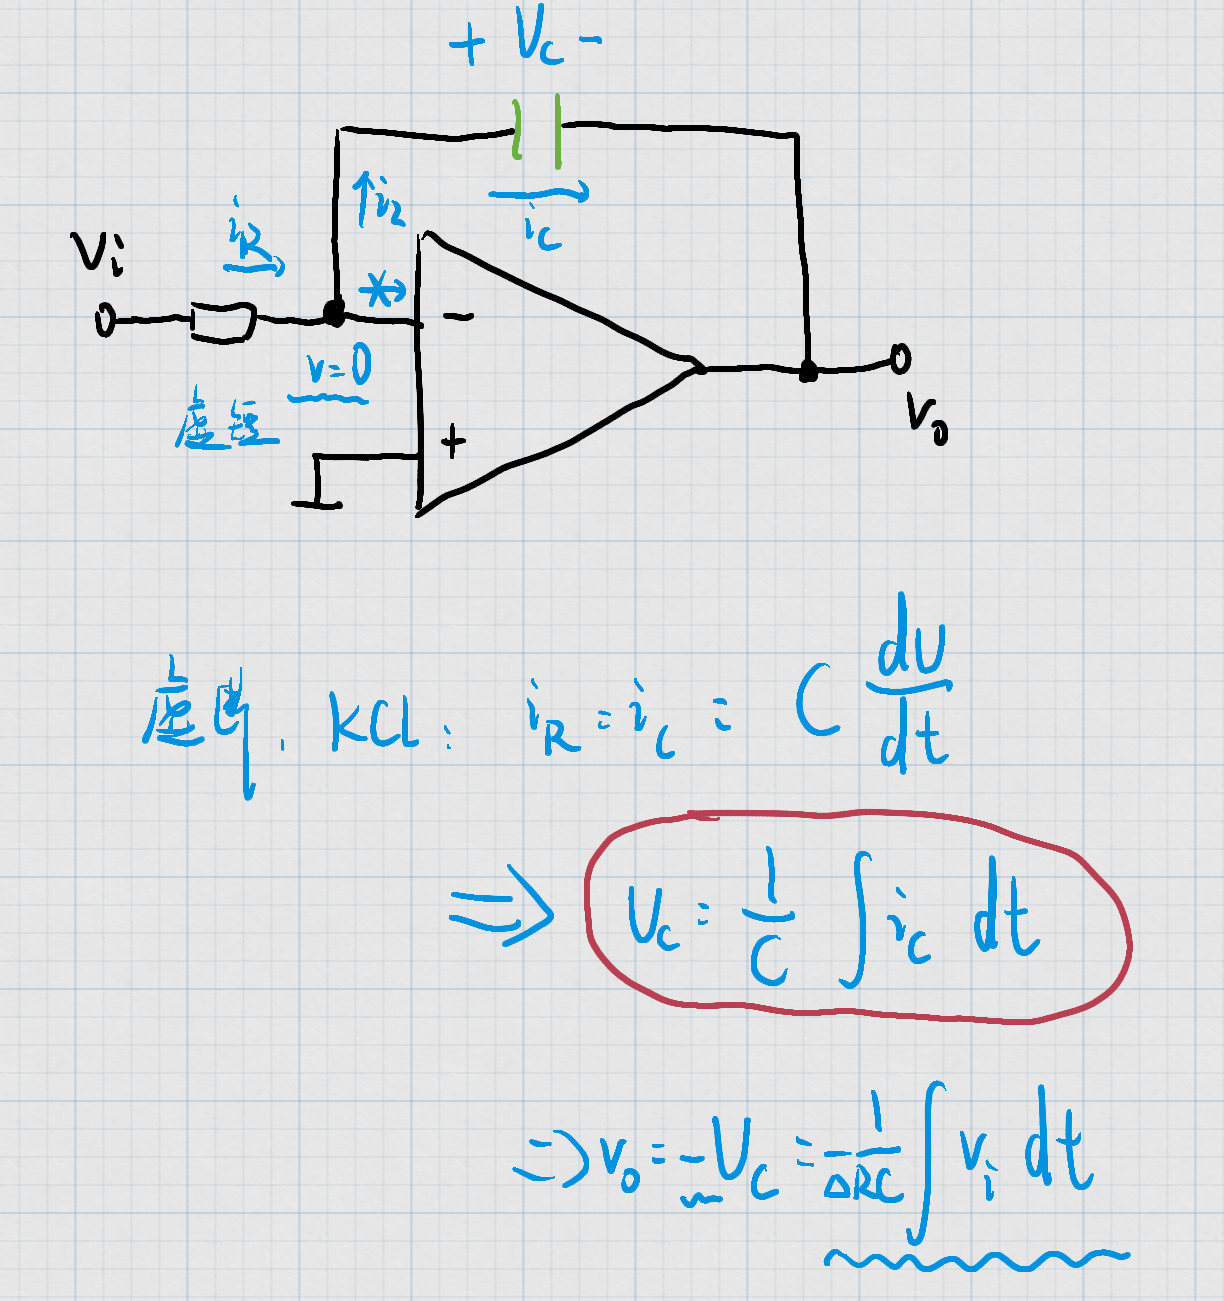 + Vc -
i2
iR
ic
Vi
-
v=0
虚短
+
Vo
虚断. KCL: iR = ic = C dU/dt
⇒ Uc = 1/C ∫ ic dt
⇒ vo = -Uc = -1/RC ∫ vi dt